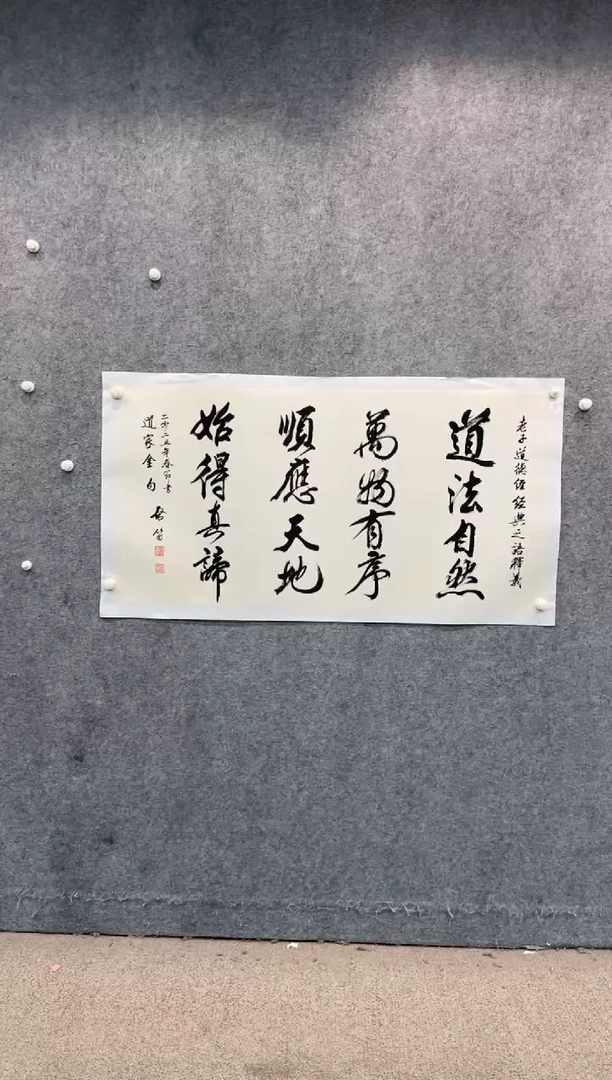 老子道德经经典之语釋義
道法自然
萬物有序
順應天地
始得真諦
二零二五年春節書
道家金句 啓笛